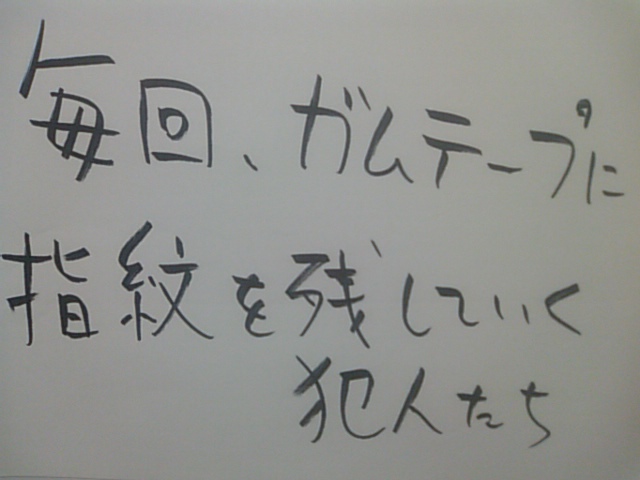 毎回、ガムテープに
指紋を残していく
犯人たち